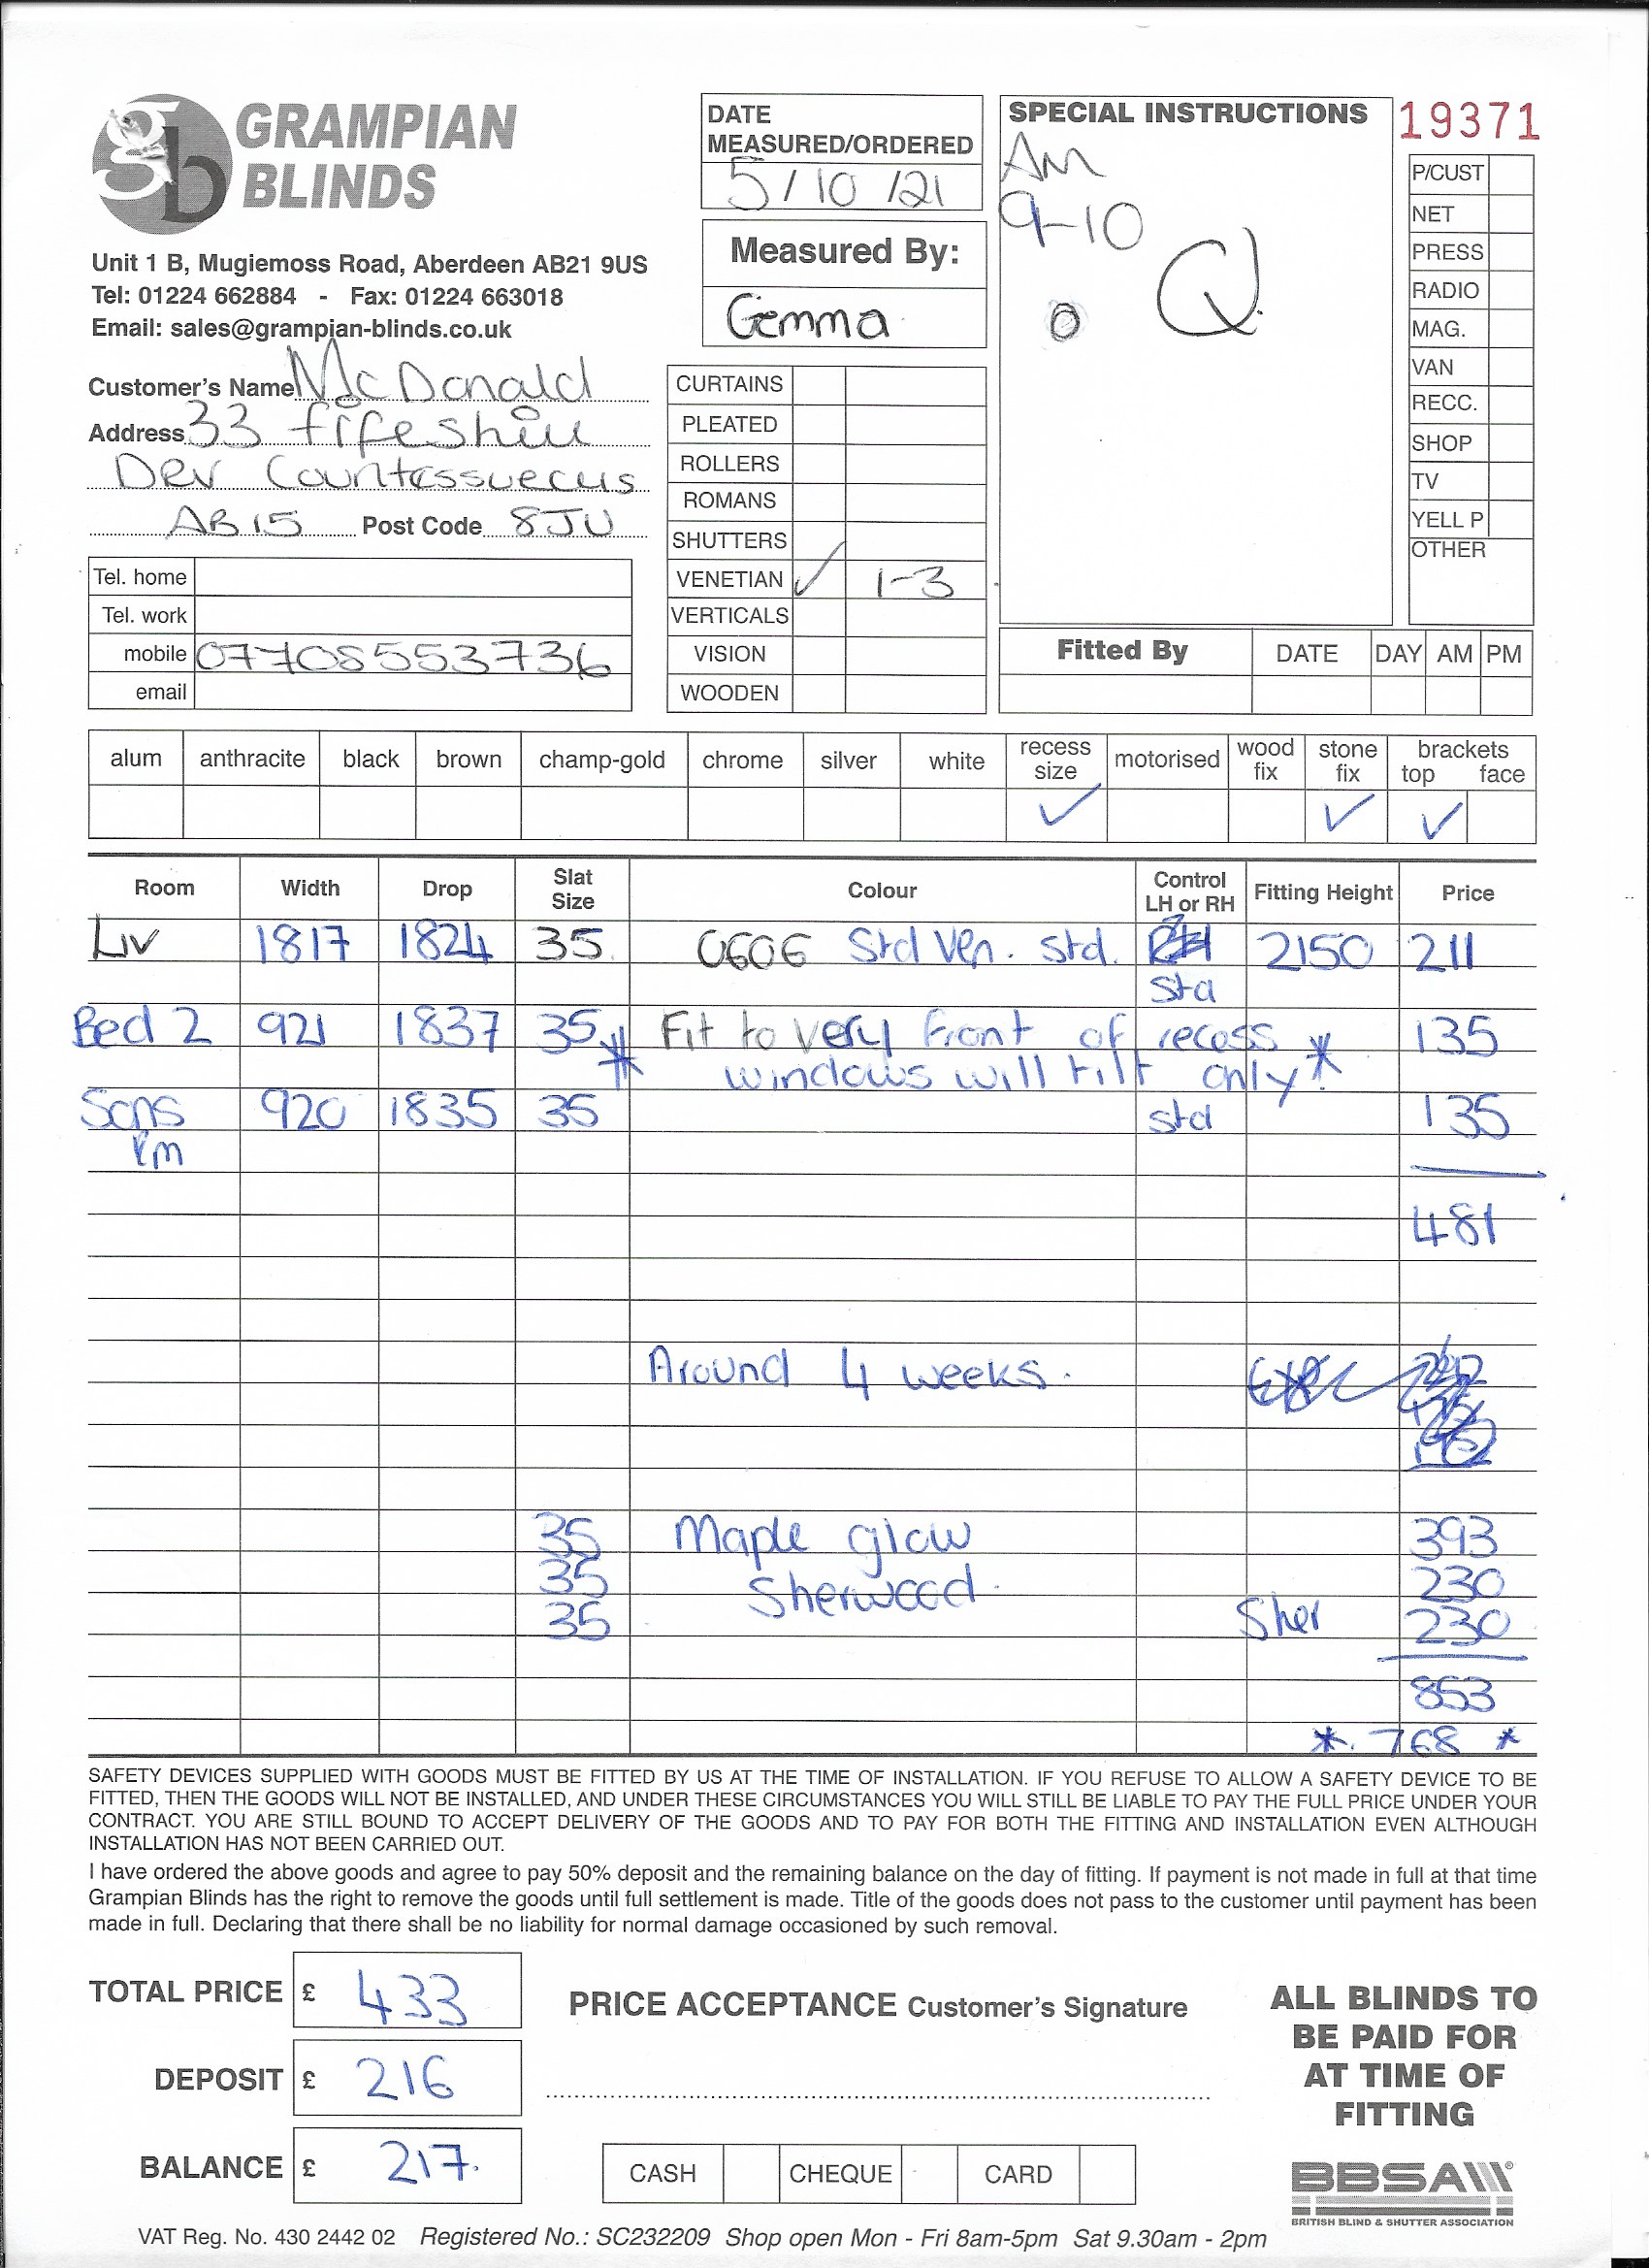 gb GRAMPIAN
BLINDS
Unit 1 B, Mugiemoss Road, Aberdeen AB21 9US
Tel: 01224 662884 - Fax: 01224 663018
Email: sales@grampian-blinds.co.uk
DATE
MEASURED/ORDERED
5/10/21
Measured By:
Gemma
SPECIAL INSTRUCTIONS
AM
9-10
Q
19371
P/CUST
NET
PRESS
RADIO
MAG.
VAN
RECC.
SHOP
TV
YELL P
OTHER
Customer's Name McDonald
Address 33 Fifeshill
Dev Countesswells
AB15 Post Code 8JU
Tel. home
Tel. work
mobile 07708553736
email
CURTAINS
PLEATED
ROLLERS
ROMANS
SHUTTERS
VENETIAN ✓ 1-3
VERTICALS
VISION
WOODEN
Fitted By DATE DAY AM PM
alum anthracite black brown champ-gold chrome silver white recess size motorised wood fix stone fix brackets top face
✓ ✓ ✓
Room Width Drop Slat Size Colour Control LH or RH Fitting Height Price
Liv 1817 1824 35 0606 Std Ven. Std. 2150 211
std
Bed 2 921 1837 35 * Fit to very front of recess * 135
windows will tilt only
Sons 920 1835 35 std 135
Rm
481
Around 4 weeks.
35 Maple glow 393
35 Sherwood 230
35 Sher 230
853
* 768 *
SAFETY DEVICES SUPPLIED WITH GOODS MUST BE FITTED BY US AT THE TIME OF INSTALLATION. IF YOU REFUSE TO ALLOW A SAFETY DEVICE TO BE
FITTED, THEN THE GOODS WILL NOT BE INSTALLED, AND UNDER THESE CIRCUMSTANCES YOU WILL STILL BE LIABLE TO PAY THE FULL PRICE UNDER YOUR
CONTRACT. YOU ARE STILL BOUND TO ACCEPT DELIVERY OF THE GOODS AND TO PAY FOR BOTH THE FITTING AND INSTALLATION EVEN ALTHOUGH
INSTALLATION HAS NOT BEEN CARRIED OUT.
I have ordered the above goods and agree to pay 50% deposit and the remaining balance on the day of fitting. If payment is not made in full at that time
Grampian Blinds has the right to remove the goods until full settlement is made. Title of the goods does not pass to the customer until payment has been
made in full. Declaring that there shall be no liability for normal damage occasioned by such removal.
TOTAL PRICE £ 433
DEPOSIT £ 216
BALANCE £ 217.
PRICE ACCEPTANCE Customer's Signature
CASH CHEQUE CARD
ALL BLINDS TO
BE PAID FOR
AT TIME OF
FITTING
BBSA
BRITISH BLIND & SHUTTER ASSOCIATION
VAT Reg. No. 430 2442 02 Registered No.: SC232209 Shop open Mon - Fri 8am-5pm Sat 9.30am - 2pm